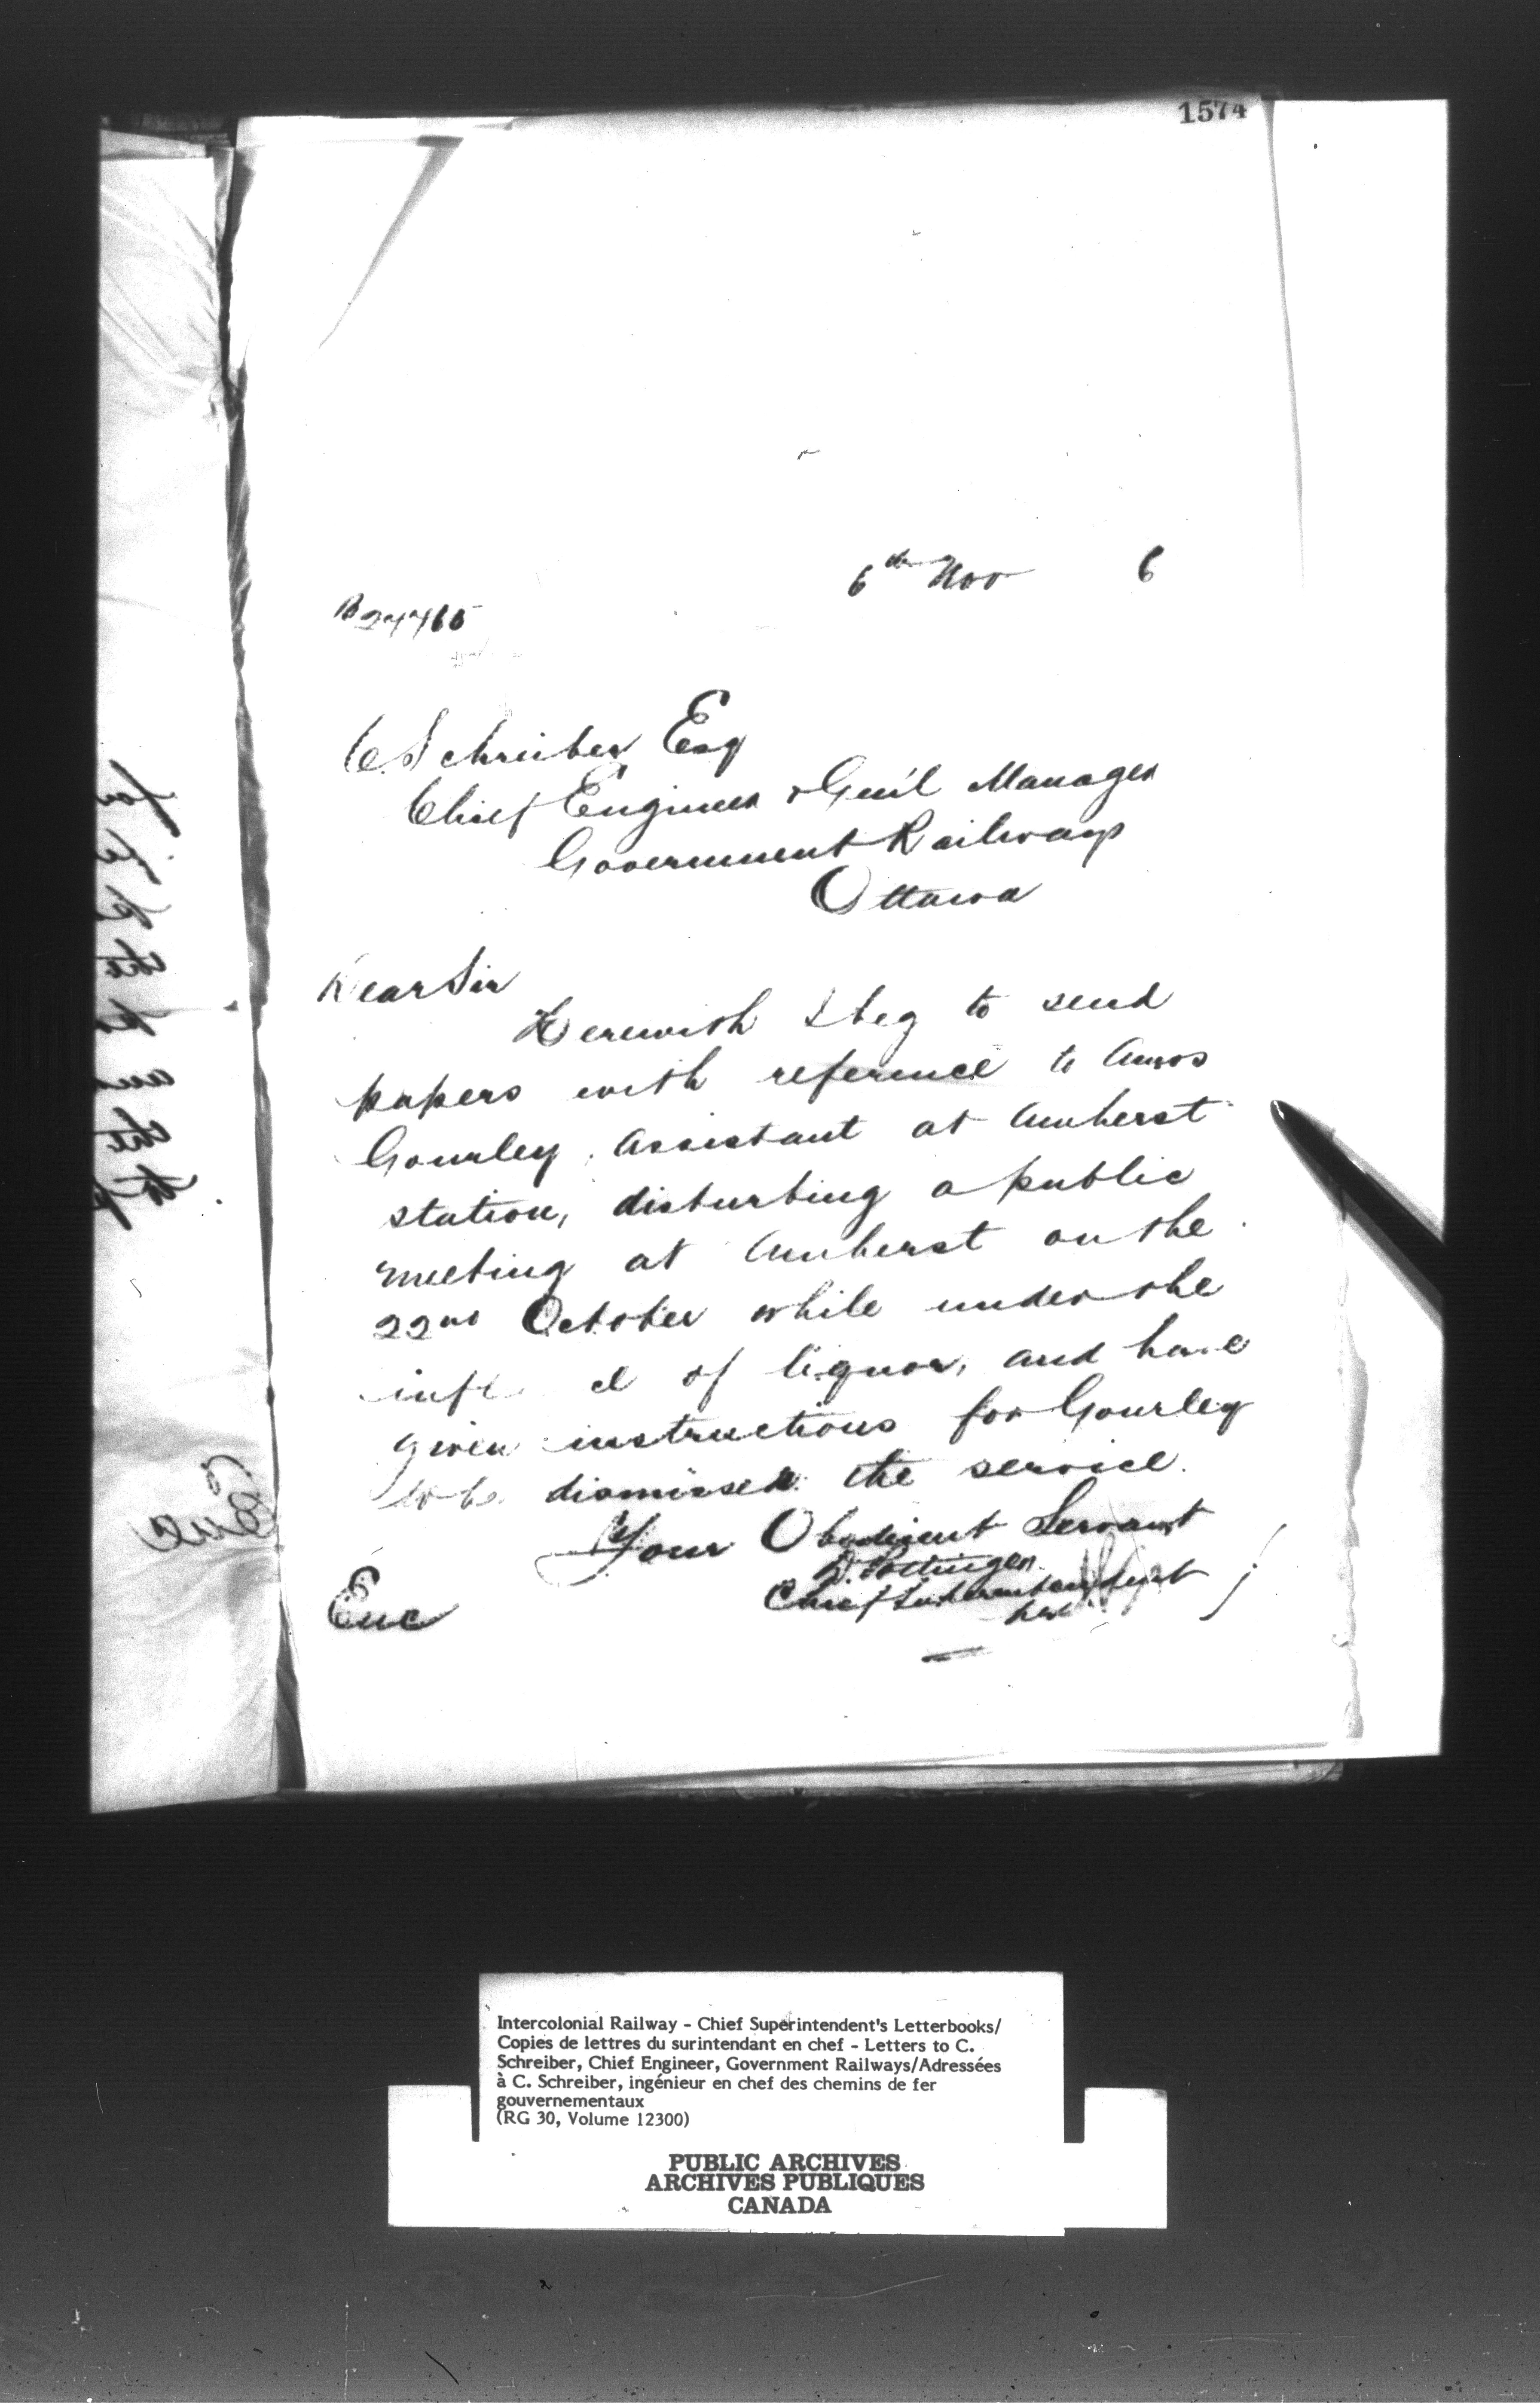 1574
6th Nov 6
C Schreiber Esq
Chief Engineer & Gen'l Manager
Government Railways
Ottawa
Dear Sir
Herewith I beg to send
papers with reference to Amos
Gourley, Assistant at Amherst
station, disturbing a public
meeting at Amherst on the
22nd October while under the
of liquor, and have
given instructions for Gourley
to be dismissed the service.
Your Obedient Servant
D. Pottinger
Chief Superintendent
Enc
Intercolonial Railway - Chief Superintendent's Letterbooks/
Copies de lettres du surintendant en chef - Letters to C.
Schreiber, Chief Engineer, Government Railways/Adressées
à C. Schreiber, ingénieur en chef des chemins de fer
gouvernementaux
(RG 30, Volume 12300)
PUBLIC ARCHIVES
ARCHIVES PUBLIQUES
CANADA